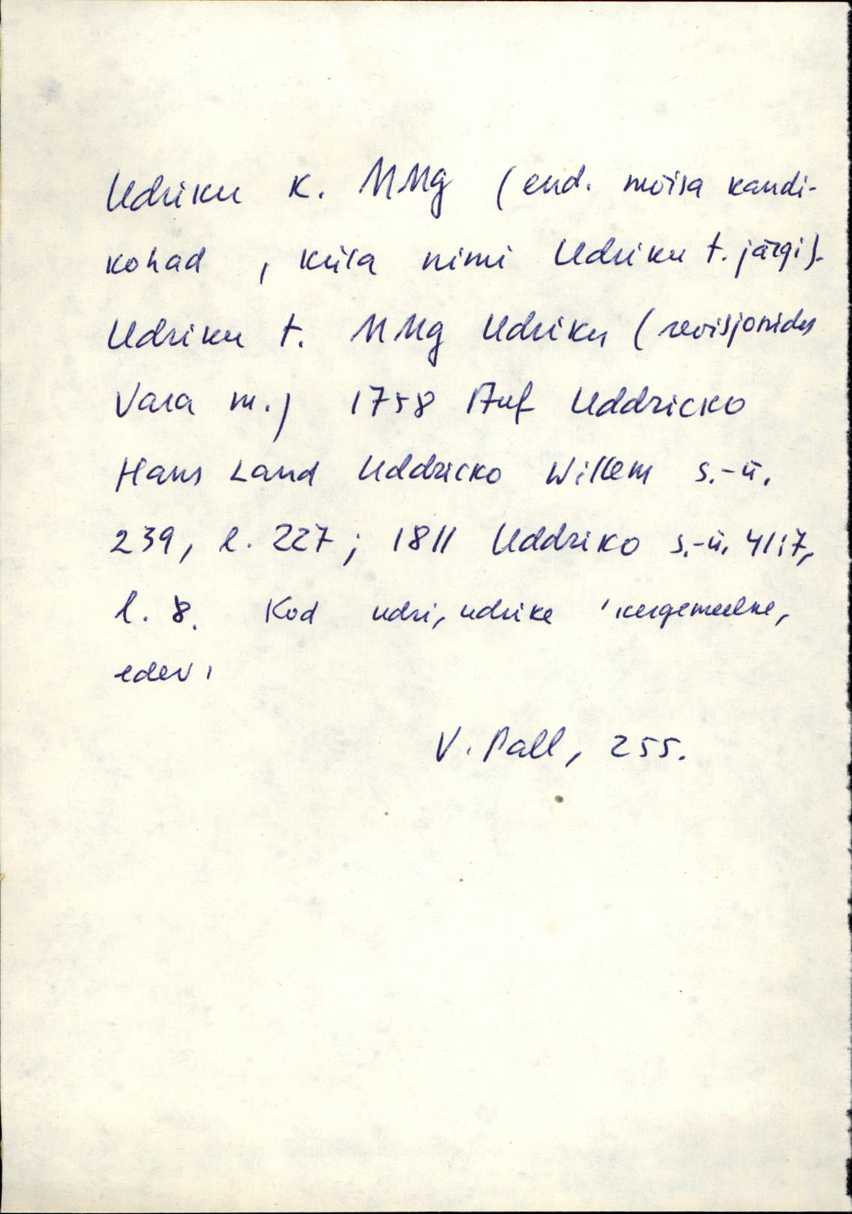 Udriku K. MMg (end. mõisa kandi-
kohad , küla nimi Udriku t. järgi).
Udriku t. MMg Udriku (revisjonides
Vara m.) 1758 Auf Uddricko
Hans Land Uddricko Willem s.-ü.
239, l. 227; 1811 Uddriko s.-ü. 41:7,
l. 8. Kod udri, udrike 'kergemeelne,
edev'
V. Pall, 255.